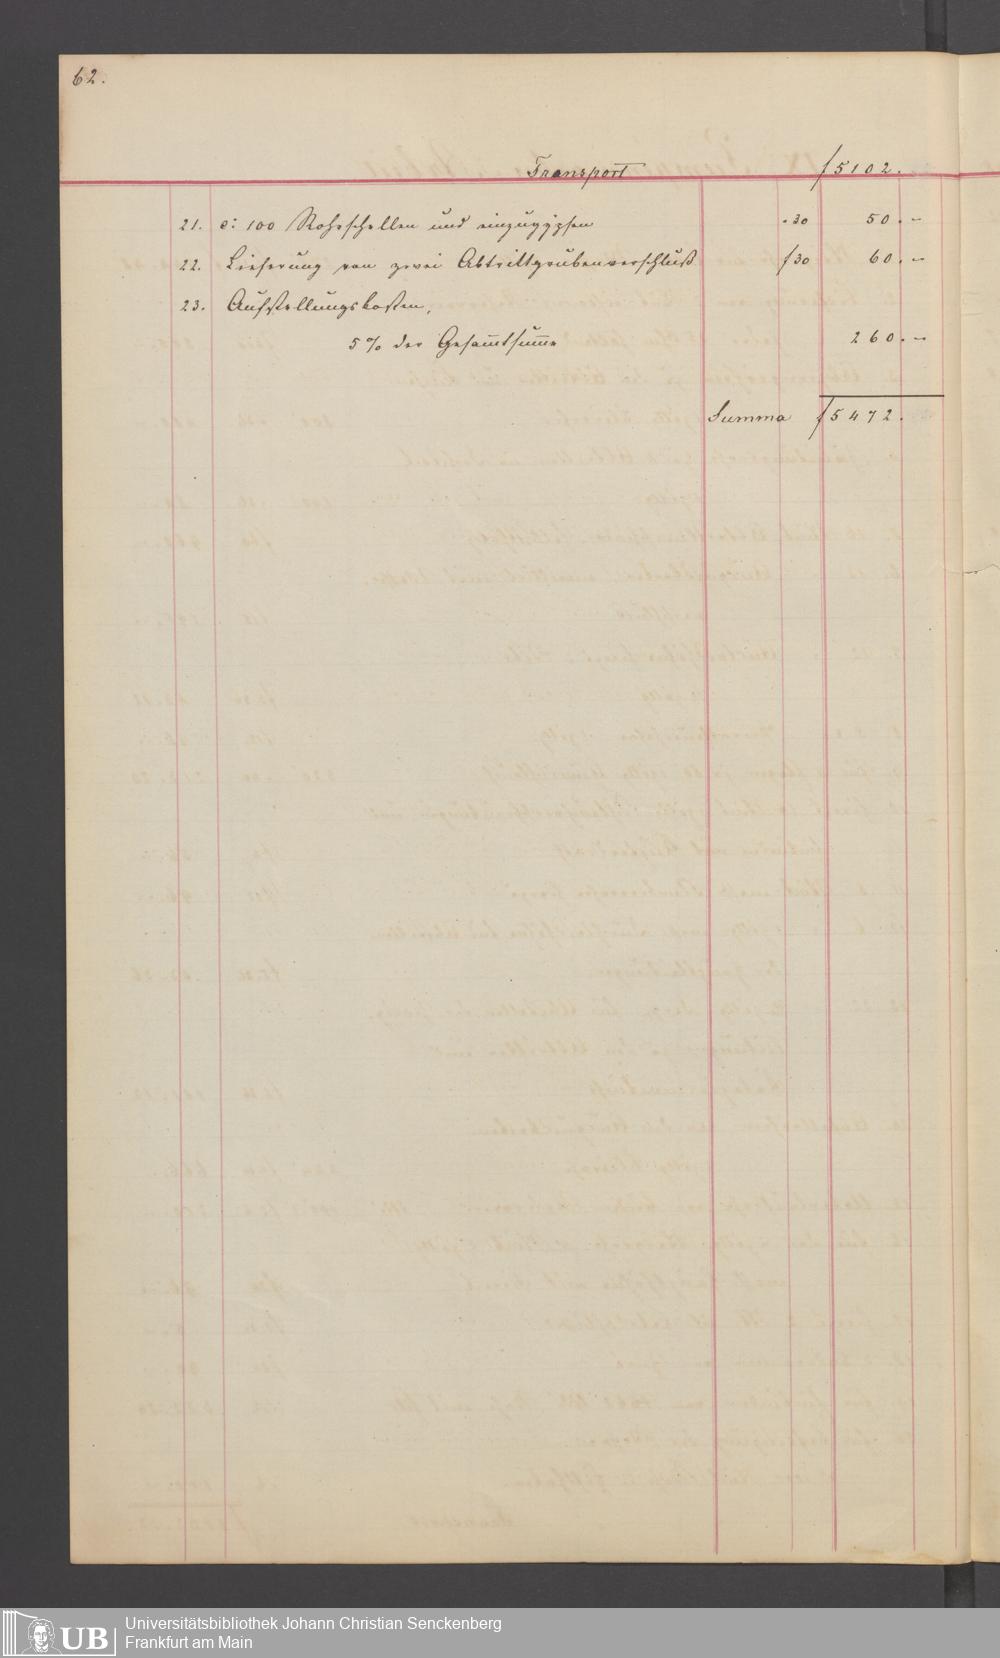 62.
Transport f 5102.
21. c: 100 Rohrschellen und einzugypsen . 30 50. –
22. Lieferung von zwei Abtrittgrubenverschluß f 30 60. –
23. Aufstellungskosten,
5 % der Gesam̅tsum̅e 260. –
Summa f 5472.
UB
Universitätsbibliothek Johann Christian Senckenberg
Frankfurt am Main